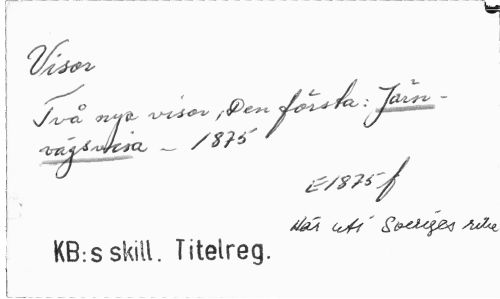 Visor
Två nya visor, Den första: Järn-
vägsvisa - 1875
E1875f
Här uti Sveriges rike
KB:s skill. Titelreg.